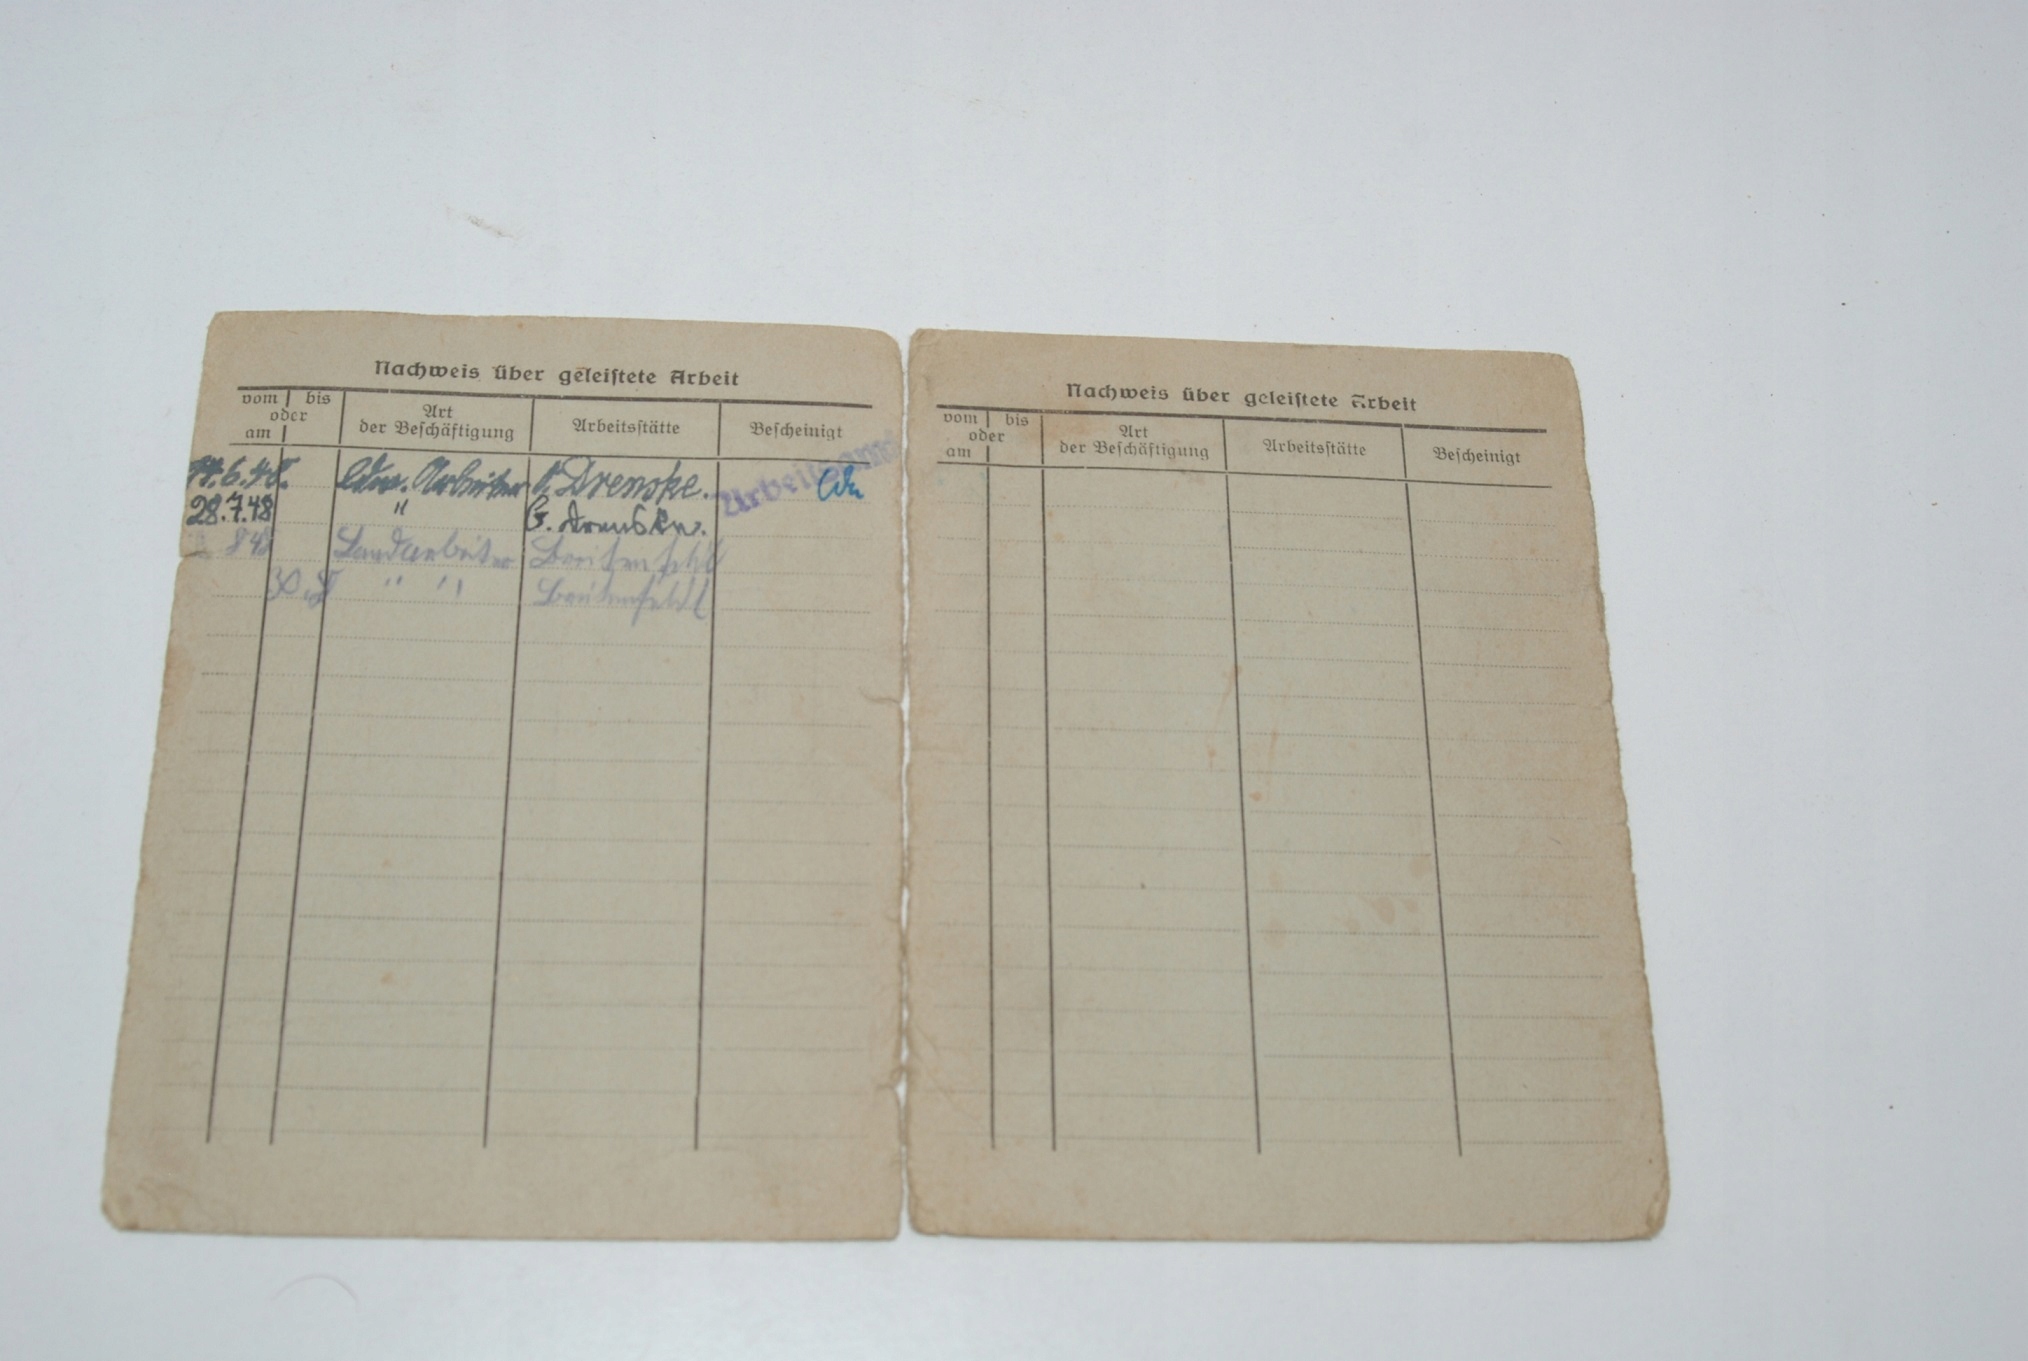 Nachweis über geleistete Arbeit
vom bis
oder
am
Art
der Beschäftigung
Arbeitsstätte
Bescheinigt
Arbeitsamt
.6.48. Arbeiter Drenske.
28.7.48 " G. Drenske.
848 Landarbeiter Breitenfeld
30.8 " " Breitenfeld
Nachweis über geleistete Arbeit
vom bis
oder
am
Art
der Beschäftigung
Arbeitsstätte
Bescheinigt